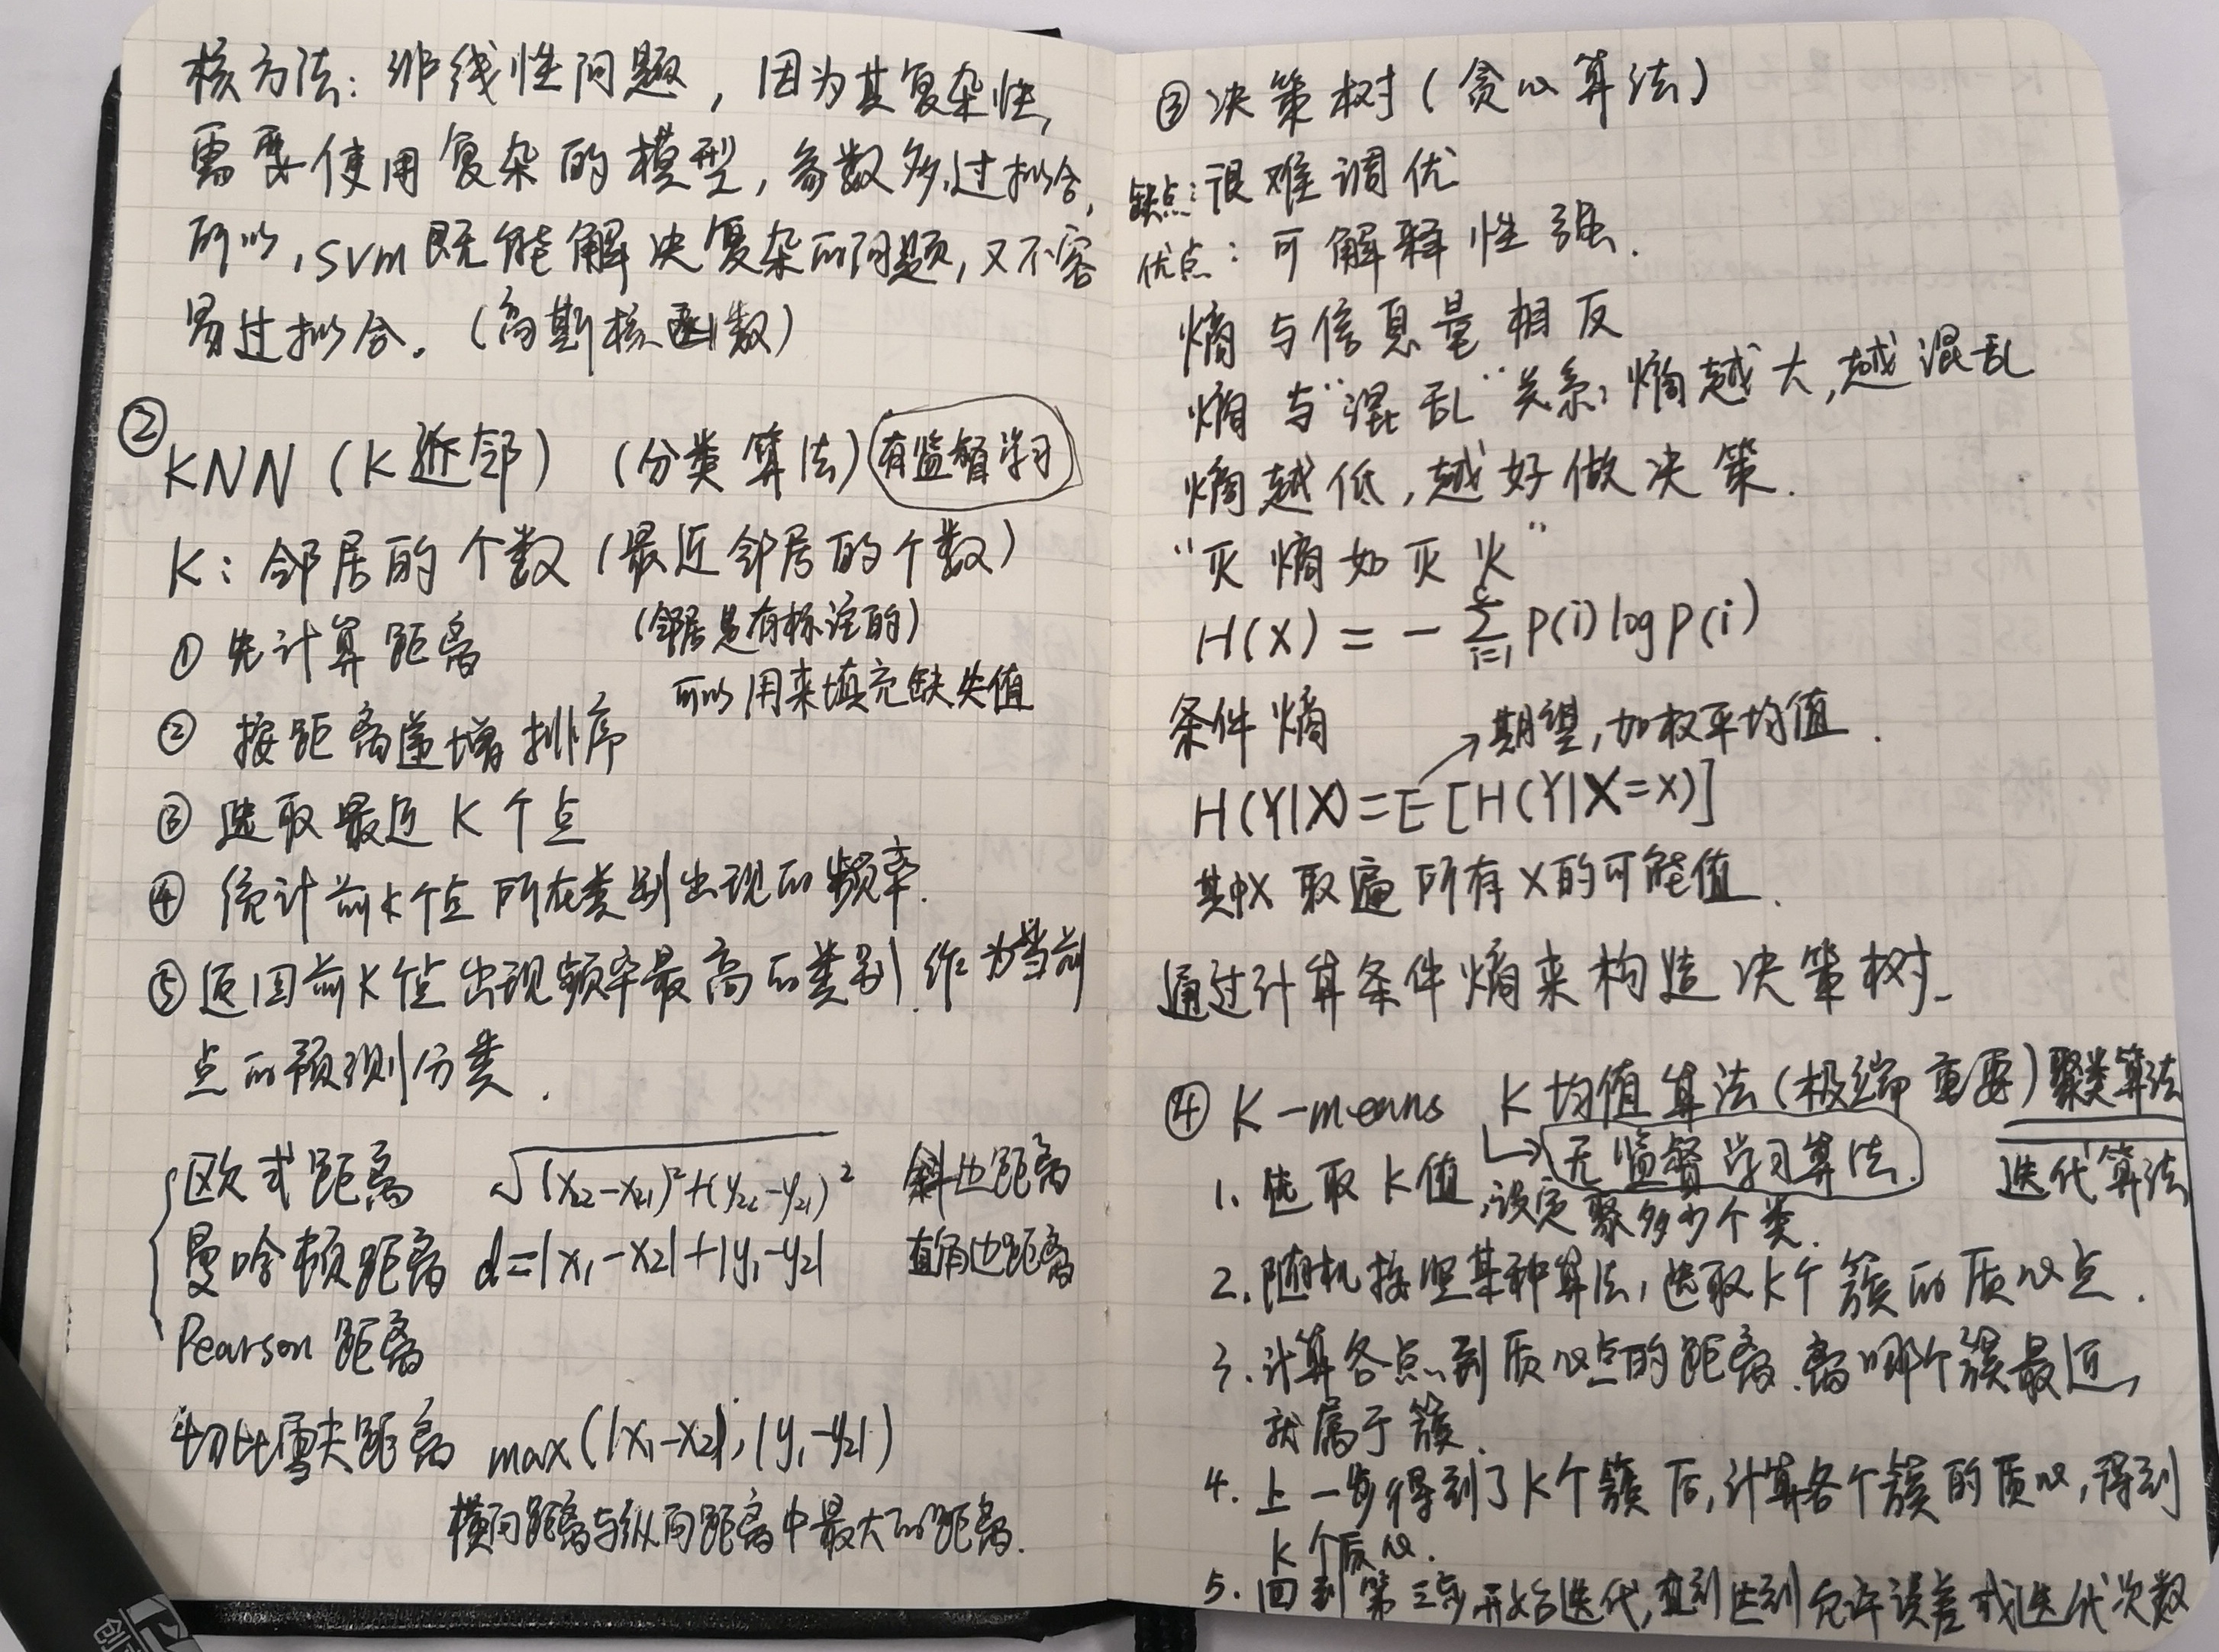 核方法：非线性问题，因为其复杂性，
需要使用复杂的模型，参数多，过拟合，
所以，svm既能解决复杂的问题，又不容
易过拟合。（高斯核函数）
② KNN（K近邻）（分类算法）有监督学习
K：邻居的个数（最近邻居的个数）
（邻居是有标注的）
① 先计算距离
可以用来填充缺失值
② 按距离递增排序
③ 选取最近K个点
④ 统计前K个点所在类别出现的频率.
⑤ 返回前K个点出现频率最高的类别.作为当前
点的预测分类.
欧式距离 √(x₂₂-x₂₁)²+(y₂₂-y₂₁)² 斜边距离
曼哈顿距离 d=|x₁-x₂|+|y₁-y₂| 直角边距离
Pearson 距离
切比雪夫距离 max(|x₁-x₂|,|y₁-y₂|)
横向距离与纵向距离中最大的距离.
③ 决策树（贪心算法）
缺点：很难调优
优点：可解释性强.
熵与信息量相反
熵与“混乱”关系，熵越大，越混乱
熵越低，越好做决策.
“灭熵如灭火”
H(X) = - Σ p(i) log p(i)
i=1
条件熵 →期望，加权平均值.
H(Y|X)=E[H(Y|X=x)]
其中X取遍所有X的可能值.
通过计算条件熵来构造决策树.
④ K-means K均值算法（极端重要）聚类算法
无监督学习算法. 迭代算法
1. 选取K值，设定聚多少个类.
2. 随机按照某种算法，选取K个簇的质心点.
3. 计算各点到质心点的距离.离哪个簇最近，
就属于簇.
4. 上一步得到了K个簇后，计算各个簇的质心，得到
K个质心.
5. 回到第三步开始迭代，直到达到允许误差或迭代次数